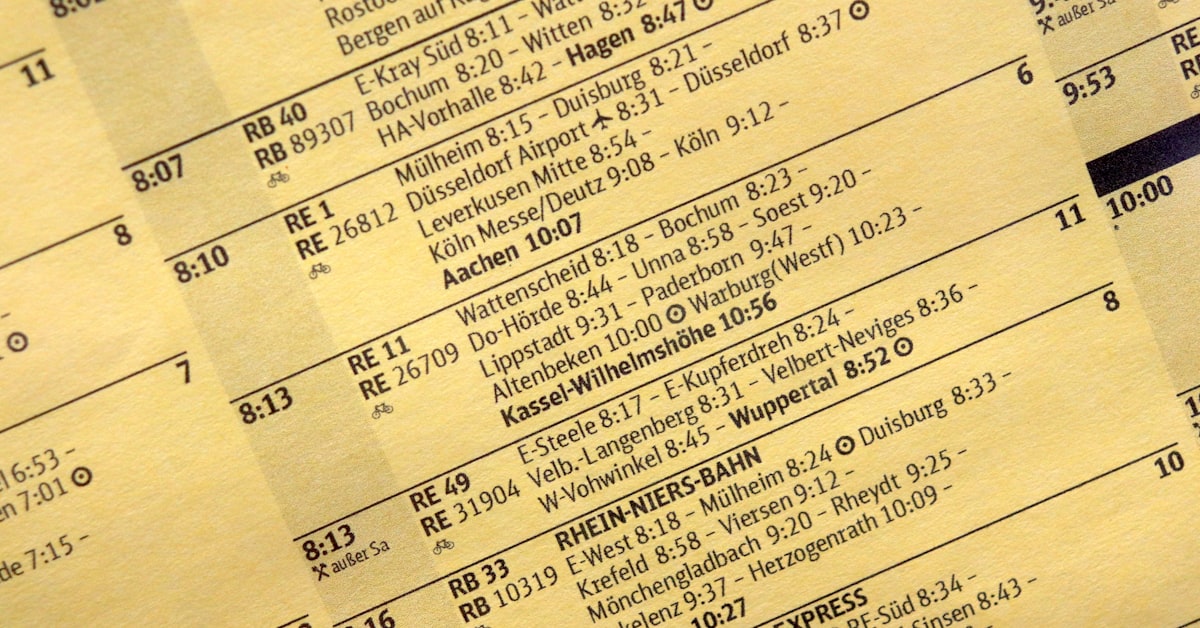 11
8
7
6:53 –
7:01
7:15 –
Bergen auf
8:07
RB 40
RB 89307
E-Kray Süd 8:11 –
Bochum 8:20 – Witten 8:32
HA-Vorhalle 8:42 – Hagen 8:47
8:10
RE 1
RE 26812
Mülheim 8:15 – Duisburg 8:21 –
Düsseldorf Airport 8:31 – Düsseldorf 8:37
Leverkusen Mitte 8:54 –
Köln Messe/Deutz 9:08 – Köln 9:12 –
Aachen 10:07
6
8:13
RE 11
RE 26709
Wattenscheid 8:18 – Bochum 8:23 –
Do-Hörde 8:44 – Unna 8:58 – Soest 9:20 –
Lippstadt 9:31 – Paderborn 9:47 –
Altenbeken 10:00 Warburg(Westf) 10:23 –
Kassel-Wilhelmshöhe 10:56
11
8:13
außer Sa
RE 49
RE 31904
E-Steele 8:17 – E-Kupferdreh 8:24 –
Velb.-Langenberg 8:31 – Velbert-Neviges 8:36 –
W-Vohwinkel 8:45 – Wuppertal 8:52
8
RB 33
RB 10319
RHEIN-NIERS-BAHN
E-West 8:18 – Mülheim 8:24 Duisburg 8:33 –
Krefeld 8:58 – Viersen 9:12 –
Mönchengladbach 9:20 – Rheydt 9:25 –
9:37 – Herzogenrath 10:09 –
10:27
10
EXPRESS
8:34 –
Sinsen 8:43 –
außer Sa
9:53
RE
10:00